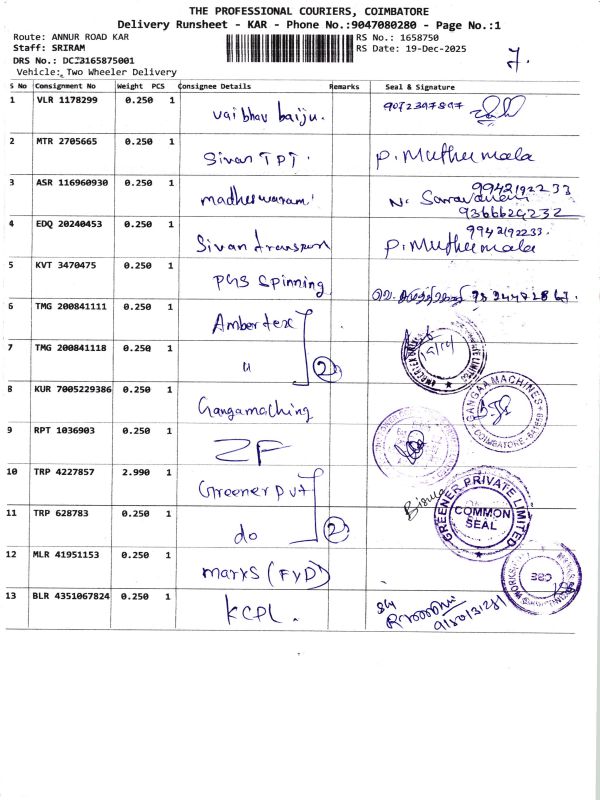 THE PROFESSIONAL COURIERS, COIMBATORE
Delivery Runsheet - KAR - Phone No.:9047080280 - Page No.:1
Route: ANNUR ROAD KAR RS No.: 1658750
Staff: SRIRAM RS Date: 19-Dec-2025
DRS No.:
Vehicle: Two Wheeler Delivery 7.
S No Consignment No Weight PCS Consignee Details Remarks Seal & Signature
1 VLR 1178299 0.250 1 vaibhav baiju.
2 MTR 2705665 0.250 1 Sivan TPT. P. Muthumala
3 ASR 116960930 0.250 1 madheswaram N. Saravanan 9942192233
9366624232
4 EDQ 20240453 0.250 1 Sivan transport P. Muthumala 9942192233.
5 KVT 3470475 0.250 1 PGS Spinning
6 TMG 200841111 0.250 1 Ambertex
7 TMG 200841118 0.250 1 " 2
8 KUR 7005229386 0.250 1 Gangamaching GANGAAMACHINES COIMBATORE
9 RPT 1036903 0.250 1 ZF
10 TRP 4227857 2.990 1 Greener Pvt GREENER PRIVATE LIMITED
11 TRP 628783 0.250 1 do 2 COMMON SEAL
12 MLR 41951153 0.250 1 marks (FYD)
13 BLR 4351067824 0.250 1 KCPL.